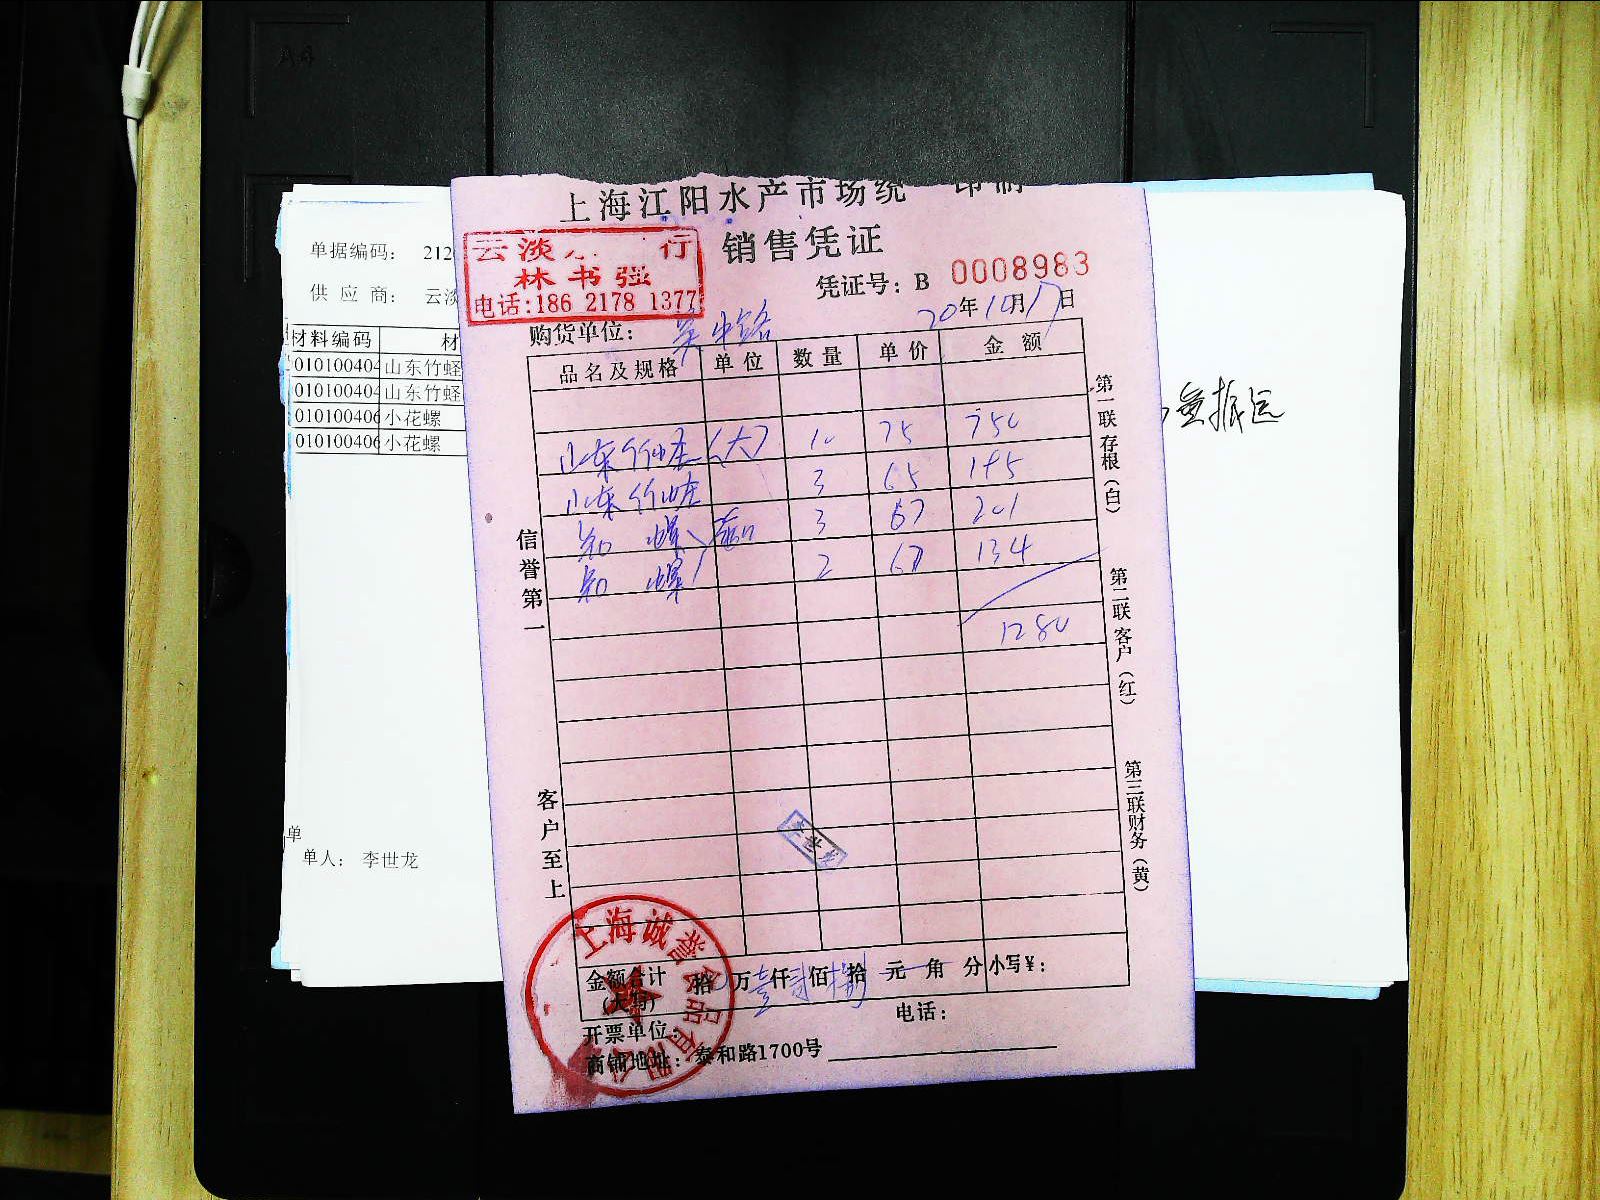 上海江阳水产市场统一印制
销售凭证
云淡 行
林书强
电话:186 2178 1377
凭证号: B 0008983
购货单位: 吴中路
20年10月17日
品名及规格 单位 数量 单价 金额
山东竹蛏(大) 10 75 750
山东竹蛏 3 65 195
花螺 3 67 201
花螺 2 67 134
1280
信誉第一
客户至上
第一联存根(白)
第二联客户(红)
第三联财务(黄)
李世龙
金额合计(大写) 拾 万壹仟贰佰捌拾 元 角 分 小写¥:
开票单位: 电话:
商铺地址: 泰和路1700号
上海诚誉食品有限公司
单据编码: 212
供应商: 云淡
材料编码 材
010100404 山东竹蛏
010100404 山东竹蛏
010100406 小花螺
010100406 小花螺
单
单人: 李世龙
A4